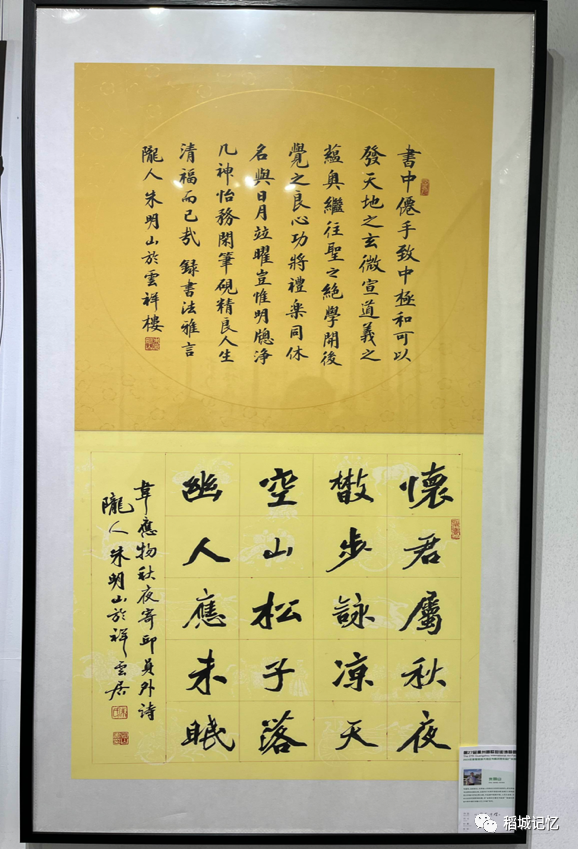 書中僊手致中極和可以
發天地之玄微宣道義之
蘊奧繼往聖之絕學開後
覺之良心功將禮樂同休
名與日月竝曜豈惟明牕淨
几神怡務閑筆硯精良人生
清福而已哉 録書法雅言
隴人朱明山於雲祥樓
懷君屬秋夜
散步詠涼天
空山松子落
幽人應未眠
韋應物秋夜寄邱員外詩
隴人朱明山於祥雲居
稻城记忆